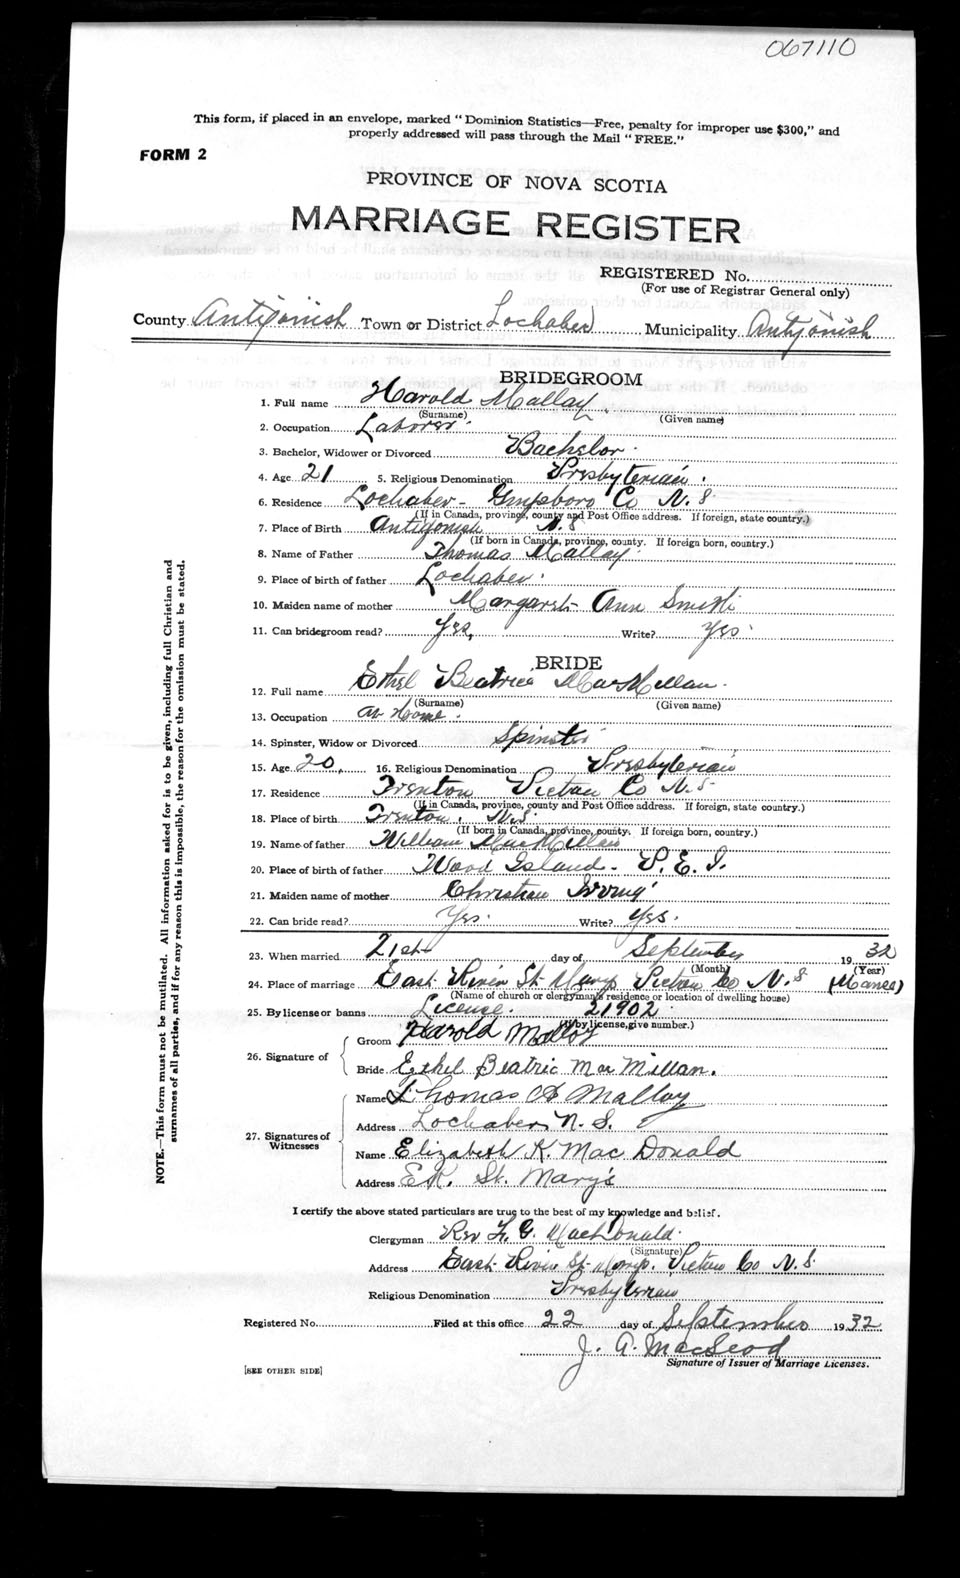 067110
This form, if placed in an envelope, marked "Dominion Statistics—Free, penalty for improper use $300," and
properly addressed will pass through the Mail "FREE."
FORM 2
PROVINCE OF NOVA SCOTIA
MARRIAGE REGISTER
REGISTERED No.
(For use of Registrar General only)
County Antigonish Town or District Lochaber Municipality Antigonish
BRIDEGROOM
1. Full name Harold Malloy
(Surname) (Given name)
2. Occupation Laborer.
3. Bachelor, Widower or Divorced Bachelor.
4. Age 21 5. Religious Denomination Presbyterian.
6. Residence Lochaber - Guysboro Co N.S
(If in Canada, province, county and Post Office address. If foreign, state country.)
7. Place of Birth Antigonish N.S
(If born in Canada, province, county. If foreign born, country.)
8. Name of Father Thomas Malloy.
9. Place of birth of father Lochaber.
10. Maiden name of mother Margaret Ann Smith
11. Can bridegroom read? Yes, Write? Yes.
BRIDE
12. Full name Ethel Beatrice MacMillan.
(Surname) (Given name)
13. Occupation At Home.
14. Spinster, Widow or Divorced Spinster
15. Age 20, 16. Religious Denomination Presbyterian
17. Residence Trenton Pictou Co N.S
(If in Canada, province, county and Post Office address. If foreign, state country.)
18. Place of birth Trenton. N.S.
(If born in Canada, province, county. If foreign born, country.)
19. Name of father William MacMillan
20. Place of birth of father Wood Island - P.E.I.
21. Maiden name of mother Christian Irving
22. Can bride read? Yes. Write? Yes.
23. When married 21st day of September 19 32
(Month) (Year)
24. Place of marriage East River St Marys Pictou Co N.S (Manse)
(Name of church or clergyman's residence or location of dwelling house)
25. By license or banns License. 21902
(If by license, give number.)
26. Signature of
Groom Harold Malloy
Bride Ethel Beatric MacMillan.
27. Signatures of Witnesses
Name Thomas A Malloy
Address Lochaber N.S.
Name Elizabeth K. MacDonald
Address E.R. St. Mary's
I certify the above stated particulars are true to the best of my knowledge and belief.
Clergyman Rev G. MacDonald.
(Signature)
Address East River St Marys. Pictou Co N.S.
Religious Denomination Presbyterian
Registered No. Filed at this office 22 day of September 1932
J. A. MacLeod
Signature of Issuer of Marriage Licenses.
[SEE OTHER SIDE]
NOTE.—This form must not be mutilated. All information asked for is to be given, including full Christian and
surnames of all parties, and if for any reason this is impossible, the reason for the omission must be stated.